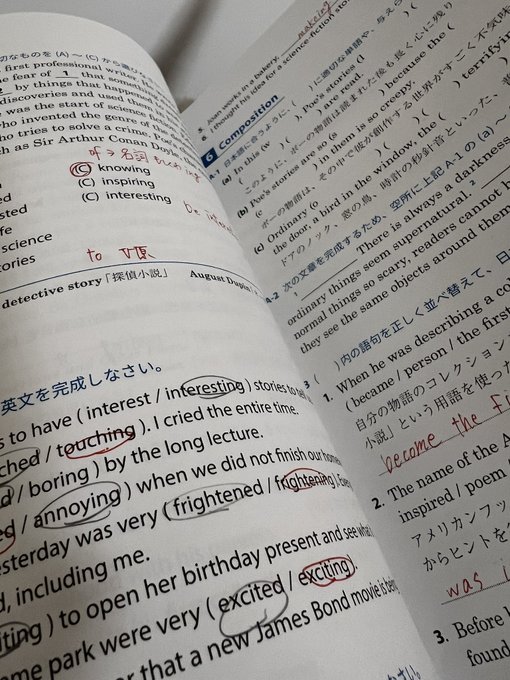 切なものを (A) ～ (C) から選びな
first professional writer
e fear of 1 that something
2 by things that happened
discoveries and used them
was the start of science
ho invented the genre of
who tries to solve a crime. Poe's
h as Sir Arthur Conan Doyle
of → 名詞
(C) knowing
(C) inspiring
(C) interesting
sted
fe
science
tories
to V原
detective story「探偵小説」 August Dupin
英文を完成しなさい。
s to have ( interest / interesting ) stories to
ched / touching ). I cried the entire time.
d / boring ) by the long lecture.
ed / annoying ) when we did not finish our
esterday was very ( frightened / frightening ).
d, including me.
iting ) to open her birthday present and see
me park were very ( excited / exciting ).
r that a new James Bond movie is
5. oan works in a bakery, making
6. I thought his idea for a science-fiction
6 Composition
A-1 日本語に合うように、( )に適切な単語や、与え
(a) In this (w ), Poe's stories (l
) are read.
このように、ポーの物語は読まれた後も長く心に残り
(b) Poe's stories are so (s ) because the (
(c ) in them is so creepy.
ポーの物語は、その中で彼が創作する世界がすごく不気味
(c) Ordinary (o ) terrifying
the door, a bird in the window, the (
ドアのノック、窓の鳥、時計の秒針音といった、
A-2 次の文章を完成するため、空所に上記 A-1 の (a) ～
1 There is always a darkness
ordinary things seem supernatural. 2
normal things so scary, readers cannot
they see the same objects around them
3 ( )内の語句を正しく並べ替えて、日
1. When he was describing a
( became / person / the first
自分の物語のコレクション
小説」という用語を使った
become the fi
2. The name of the A
inspired / poem
アメリカンフッ
からヒントを
was i
3. Before
found